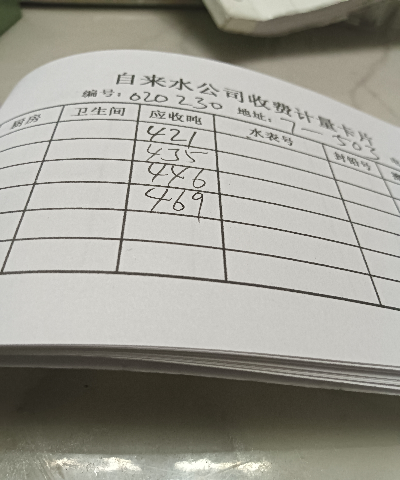 自来水公司收费计量卡片
编号：020230 地址：7—503
厨房 卫生间 应收吨 水表号 封铅号
421
435
446
469